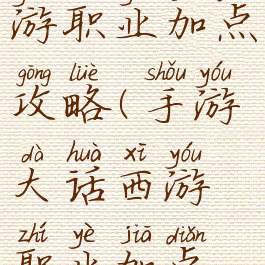 游职业加点
gōng lüè shǒu yóu
攻略(手游
dà huà xī yóu
大话西游
zhí yè jiā diǎn
职业加点